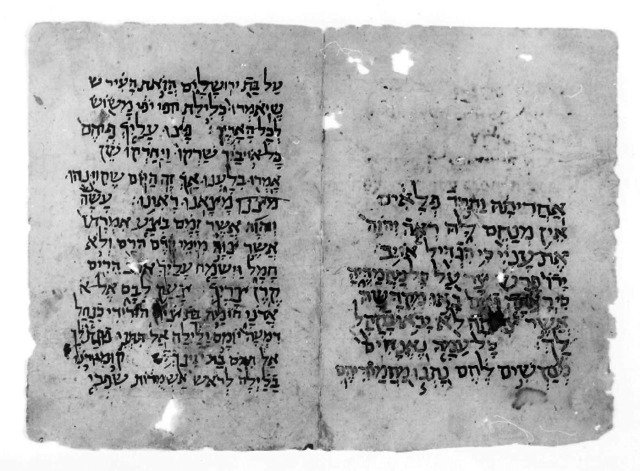 אחריתה ותרד פלאים
אין מנחם לה ראה יהוה
את עניי כי הגדיל אויב
ידו פרש צר על כל מחמדיה
כי ראתה באו מקדשה
אשר לא יבאו בקהל
לך כל עמה נאנחים
מבקשים לחם נתנו מחמודיהם
על בת ירושלים הזאת העיר ש
שיאמרו כלילת יפי משוש
לכל הארץ פצו עליך פיהם
כל אויביך שרקו ויחרקו שן
אמרו בלענו אך זה היום שקוינהו
מצאנו ראינו עשה
יהוה אשר זמם בצע אמרתו
אשר צוה מימי קדם הרס ולא
חמל וישמח עליך הרים
קרן צריך צעק לבם אל א
אדני חומת הורידי כנחל
דמעה יומם ולילה אל תתני
אל תדם בת עינך קומי רני
בלילה לראש אשמרות שפכי